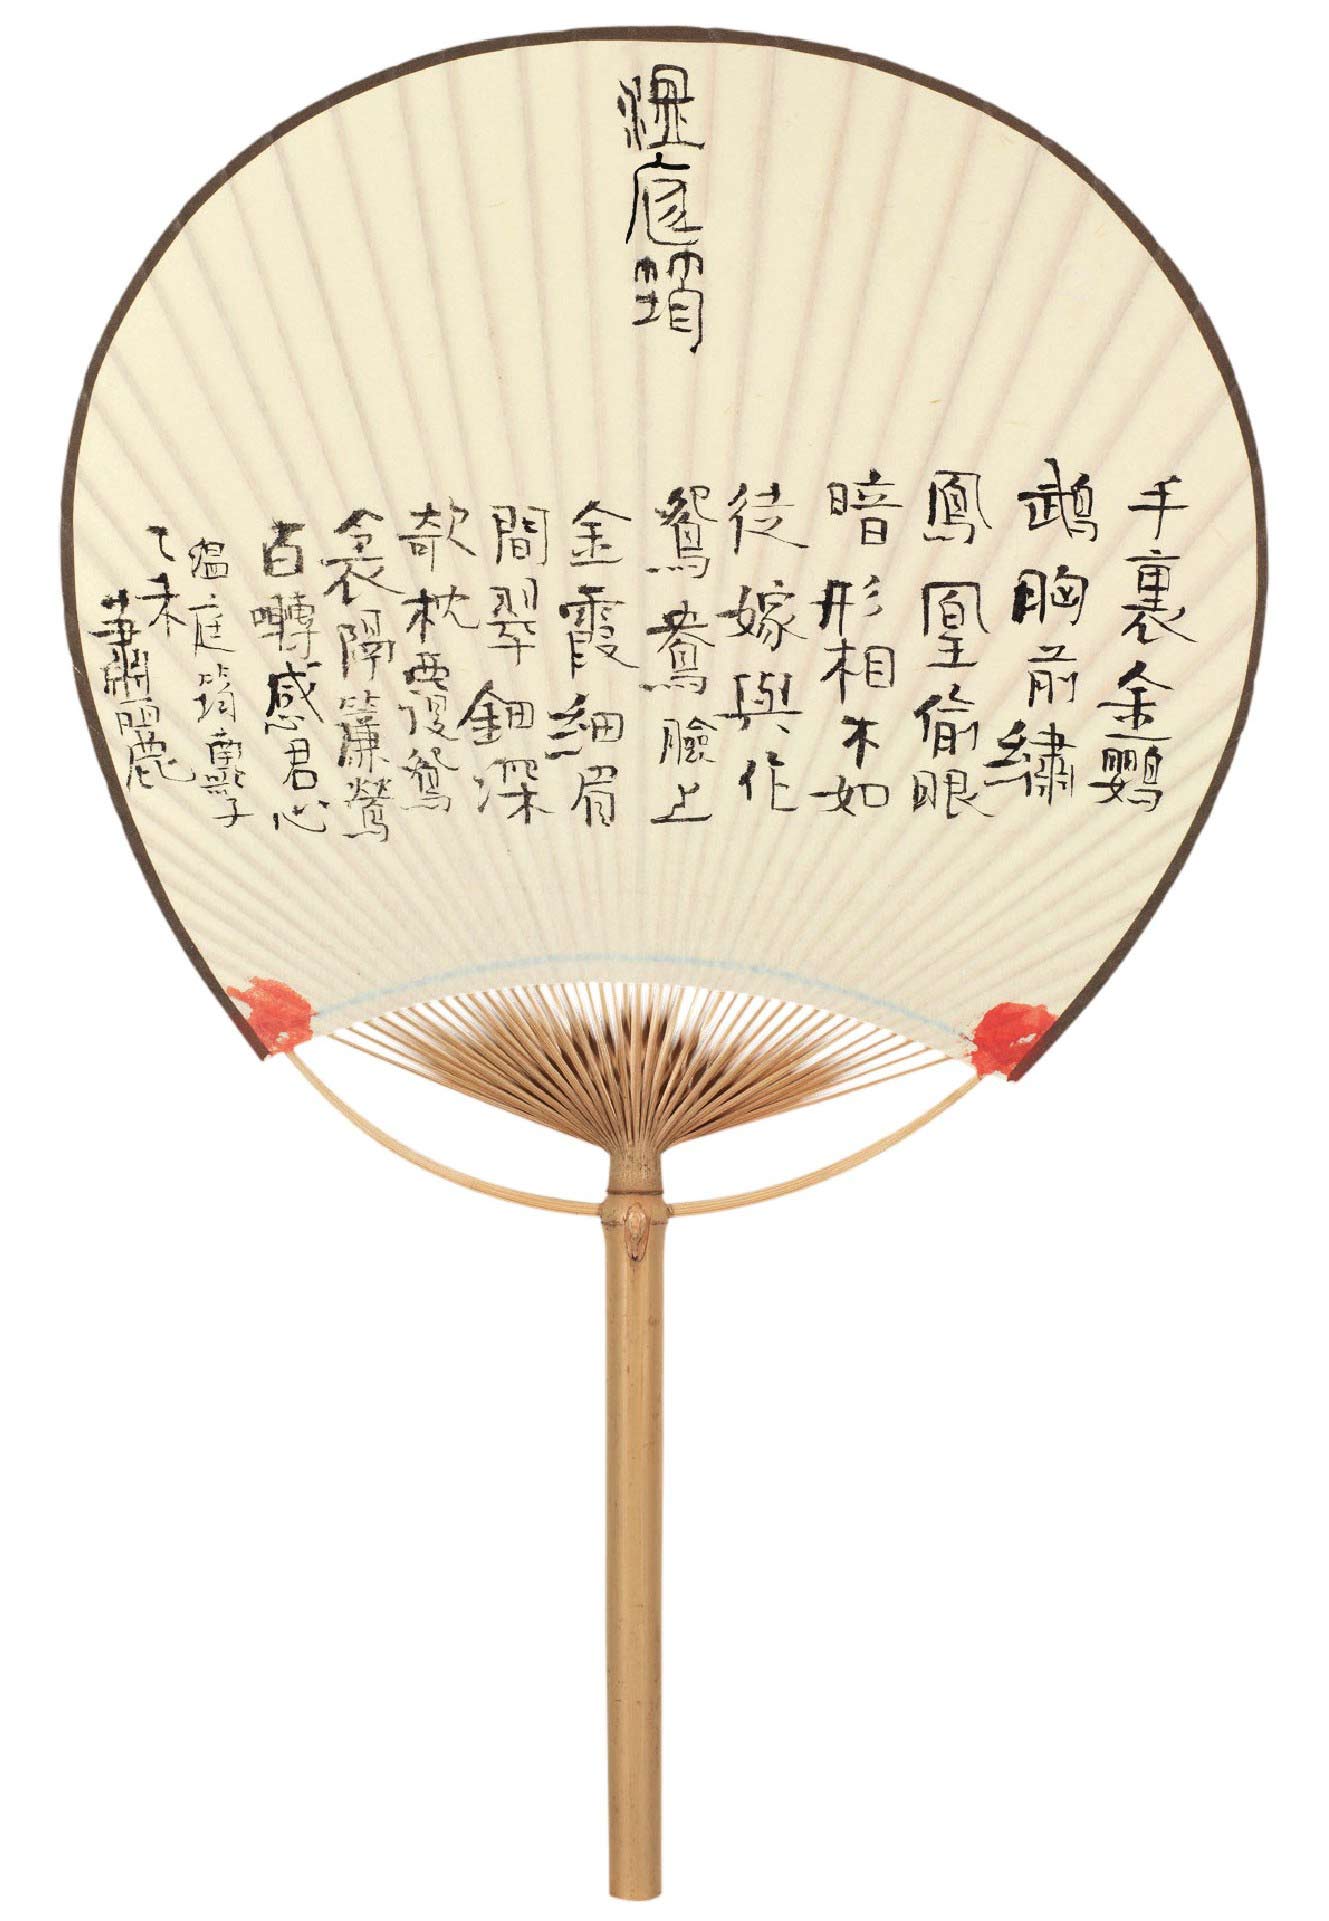 溫庭筠
手裏金鸚
鵡胸前繡
鳳凰偷眼
暗形相不如
從嫁與作
鴛鴦臉上
金霞細眉
間翠鈿深
欹枕覆鴛
衾隔簾鶯
百囀感君心
温庭筠南歌子
乙未
蕭麗